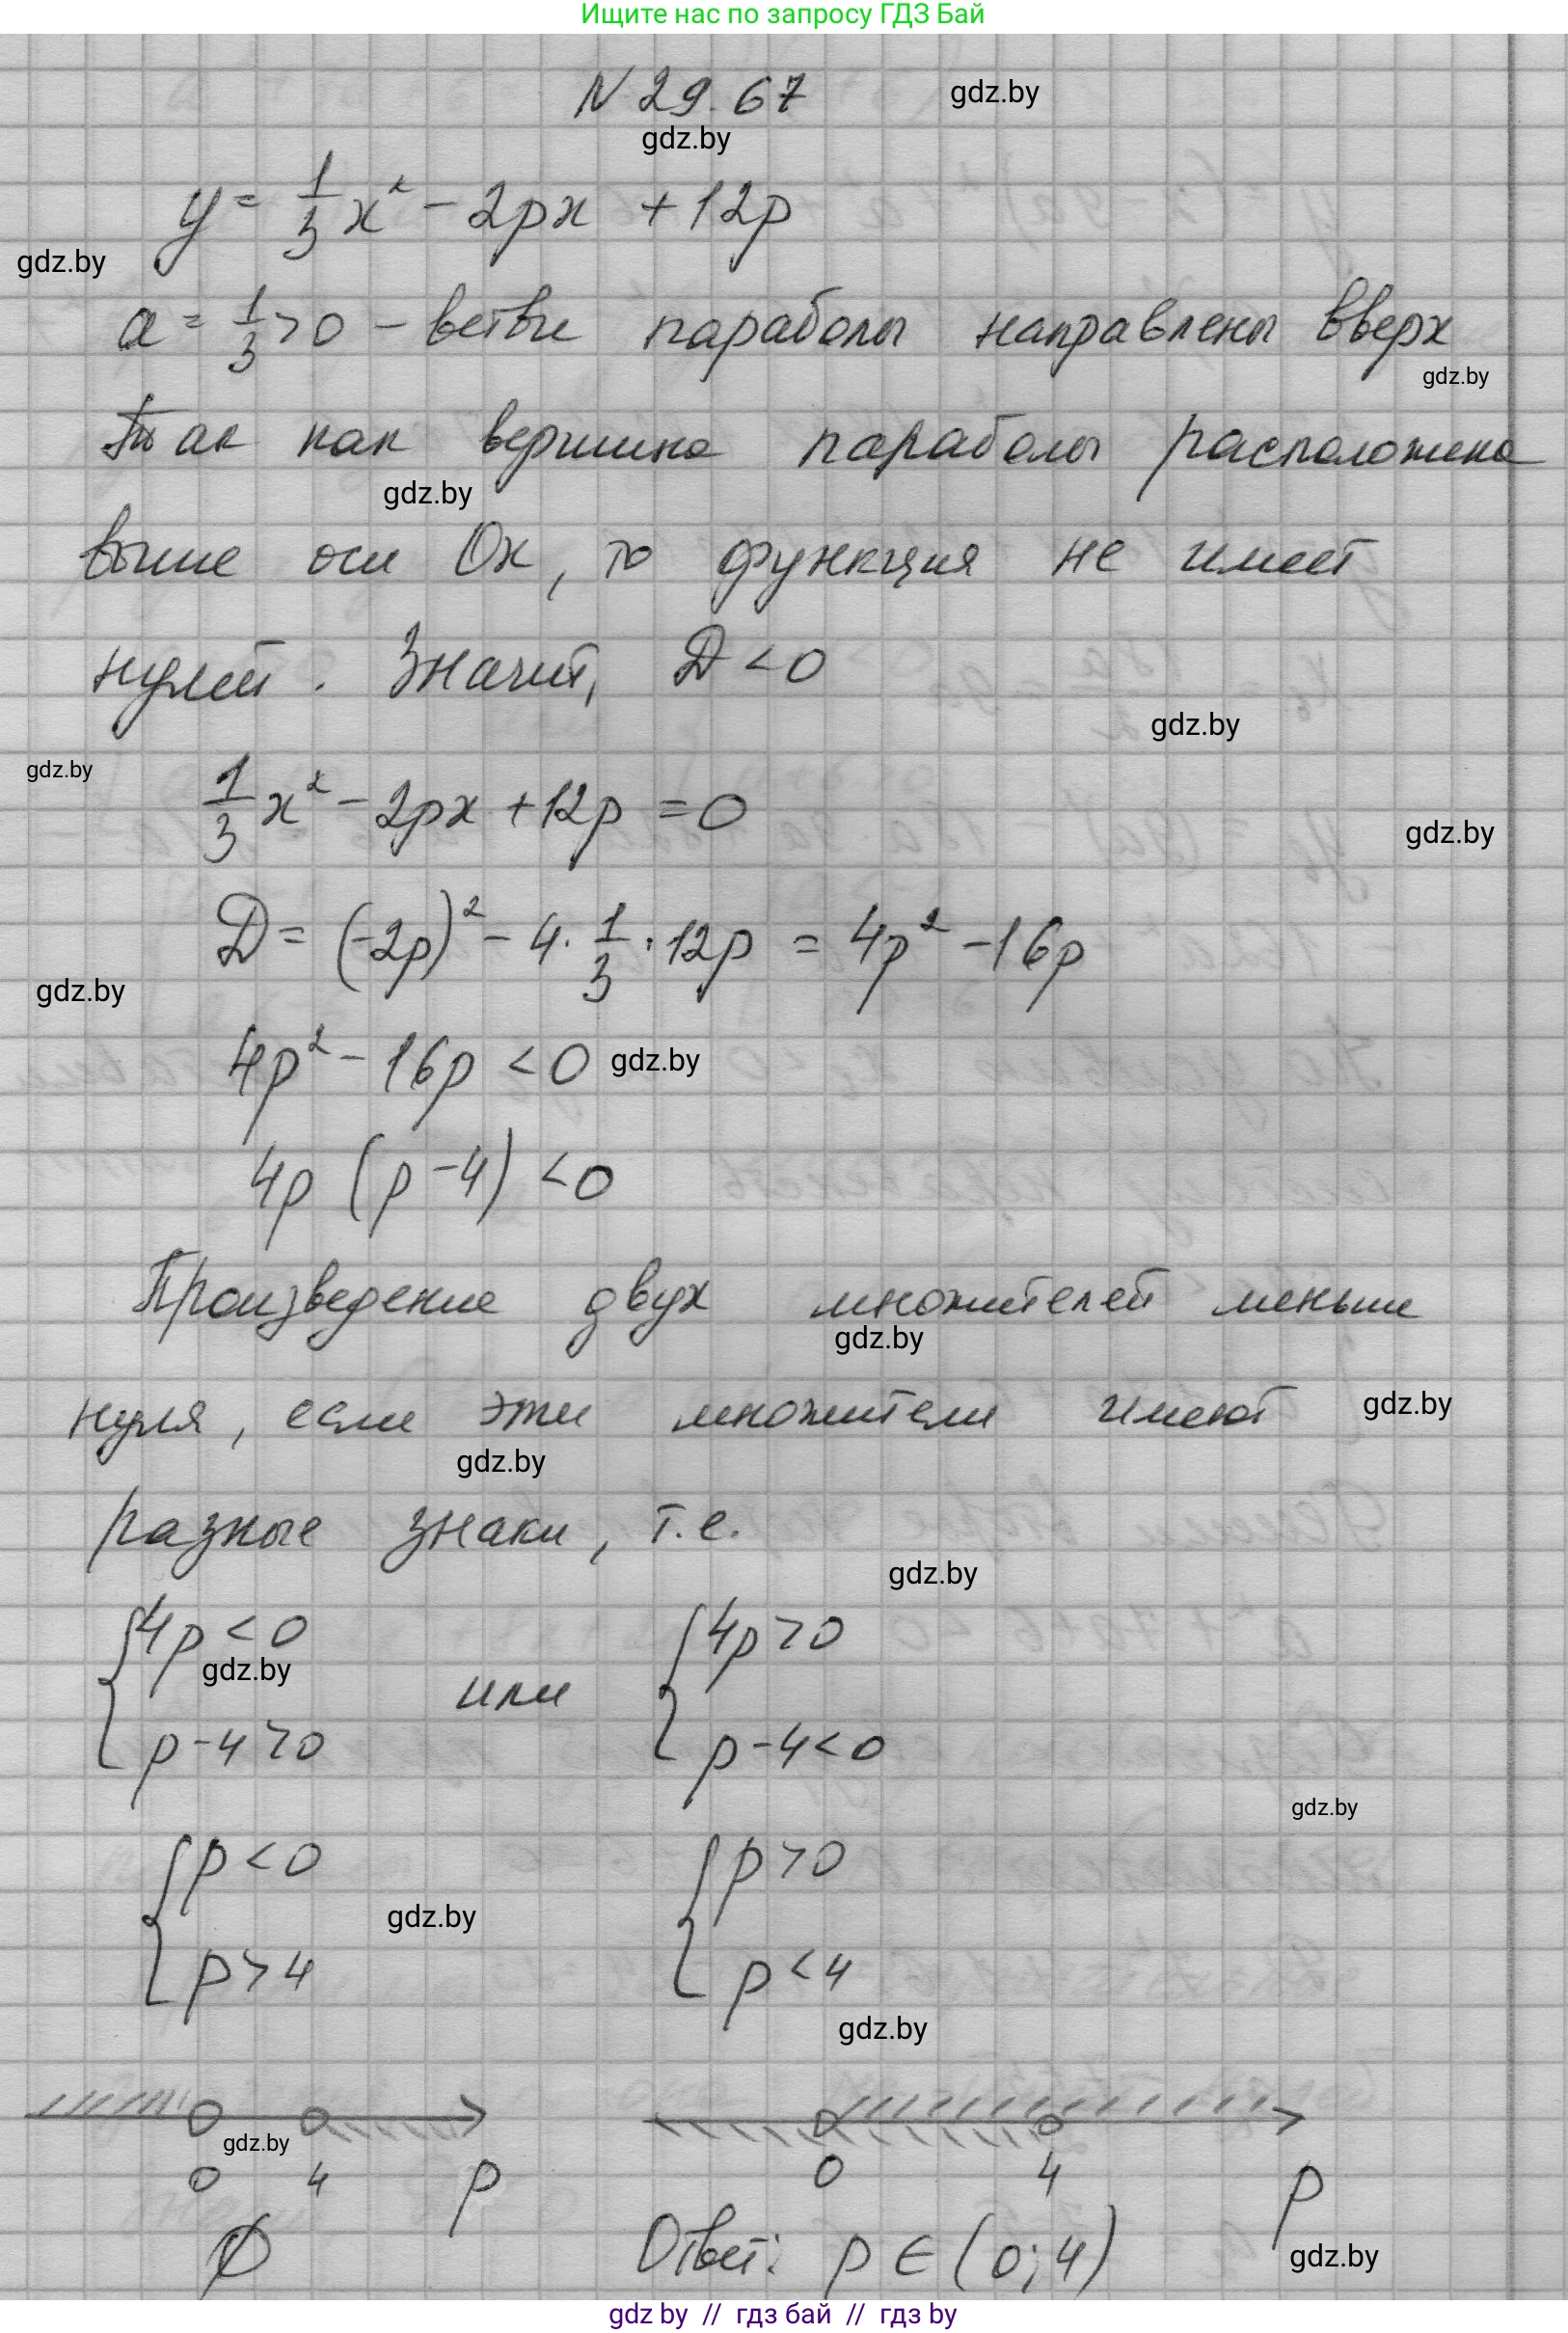 Ищите нас по запросу ГДЗ Бай
N 29.67
gdz.by
gdz.by
y = 1/3 x² - 2px + 12p
gdz.by
a = 1/3 > 0 - ветви параболы направлены вверх
gdz.by
Так как вершина параболы расположена
gdz.by
выше оси Ох, то функция не имеет
нулей. Значит, D < 0
gdz.by
gdz.by
1/3 x² - 2px + 12p = 0
gdz.by
D = (-2p)² - 4 · 1/3 · 12p = 4p² - 16p
gdz.by
4p² - 16p < 0 gdz.by
4p (p - 4) < 0
Произведение двух множителей меньше
gdz.by
нуля, если эти множители имеют gdz.by
gdz.by
разные знаки, т.е.
gdz.by
{4p < 0 или {4p > 0
gdz.by
p - 4 > 0 p - 4 < 0
gdz.by
{p < 0 {p > 0
gdz.by
p > 4 p < 4
gdz.by
gdz.by
0 4 p 0 4 p
∅ Ответ: p ∈ (0; 4)
gdz.by
gdz by // гдз бай // гдз by